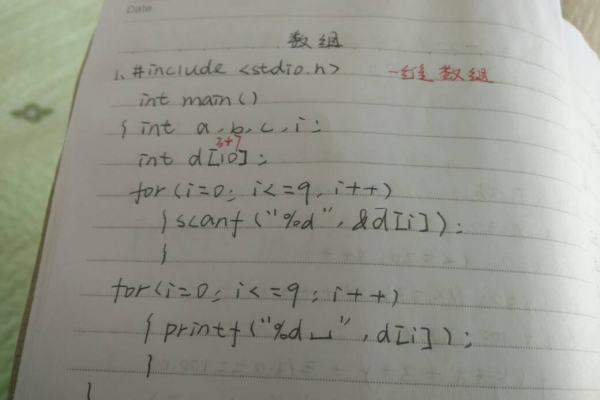 Date
数组
1. #include <stdio.h> 一维数组
int main()
{ int a, b, c, i;
3+7
int d[10];
for(i=0; i<=9, i++)
{scanf("%d", &d[i]);
}
for(i=0; i<=9; i++)
{printf("%d␣", d[i]);
}
}